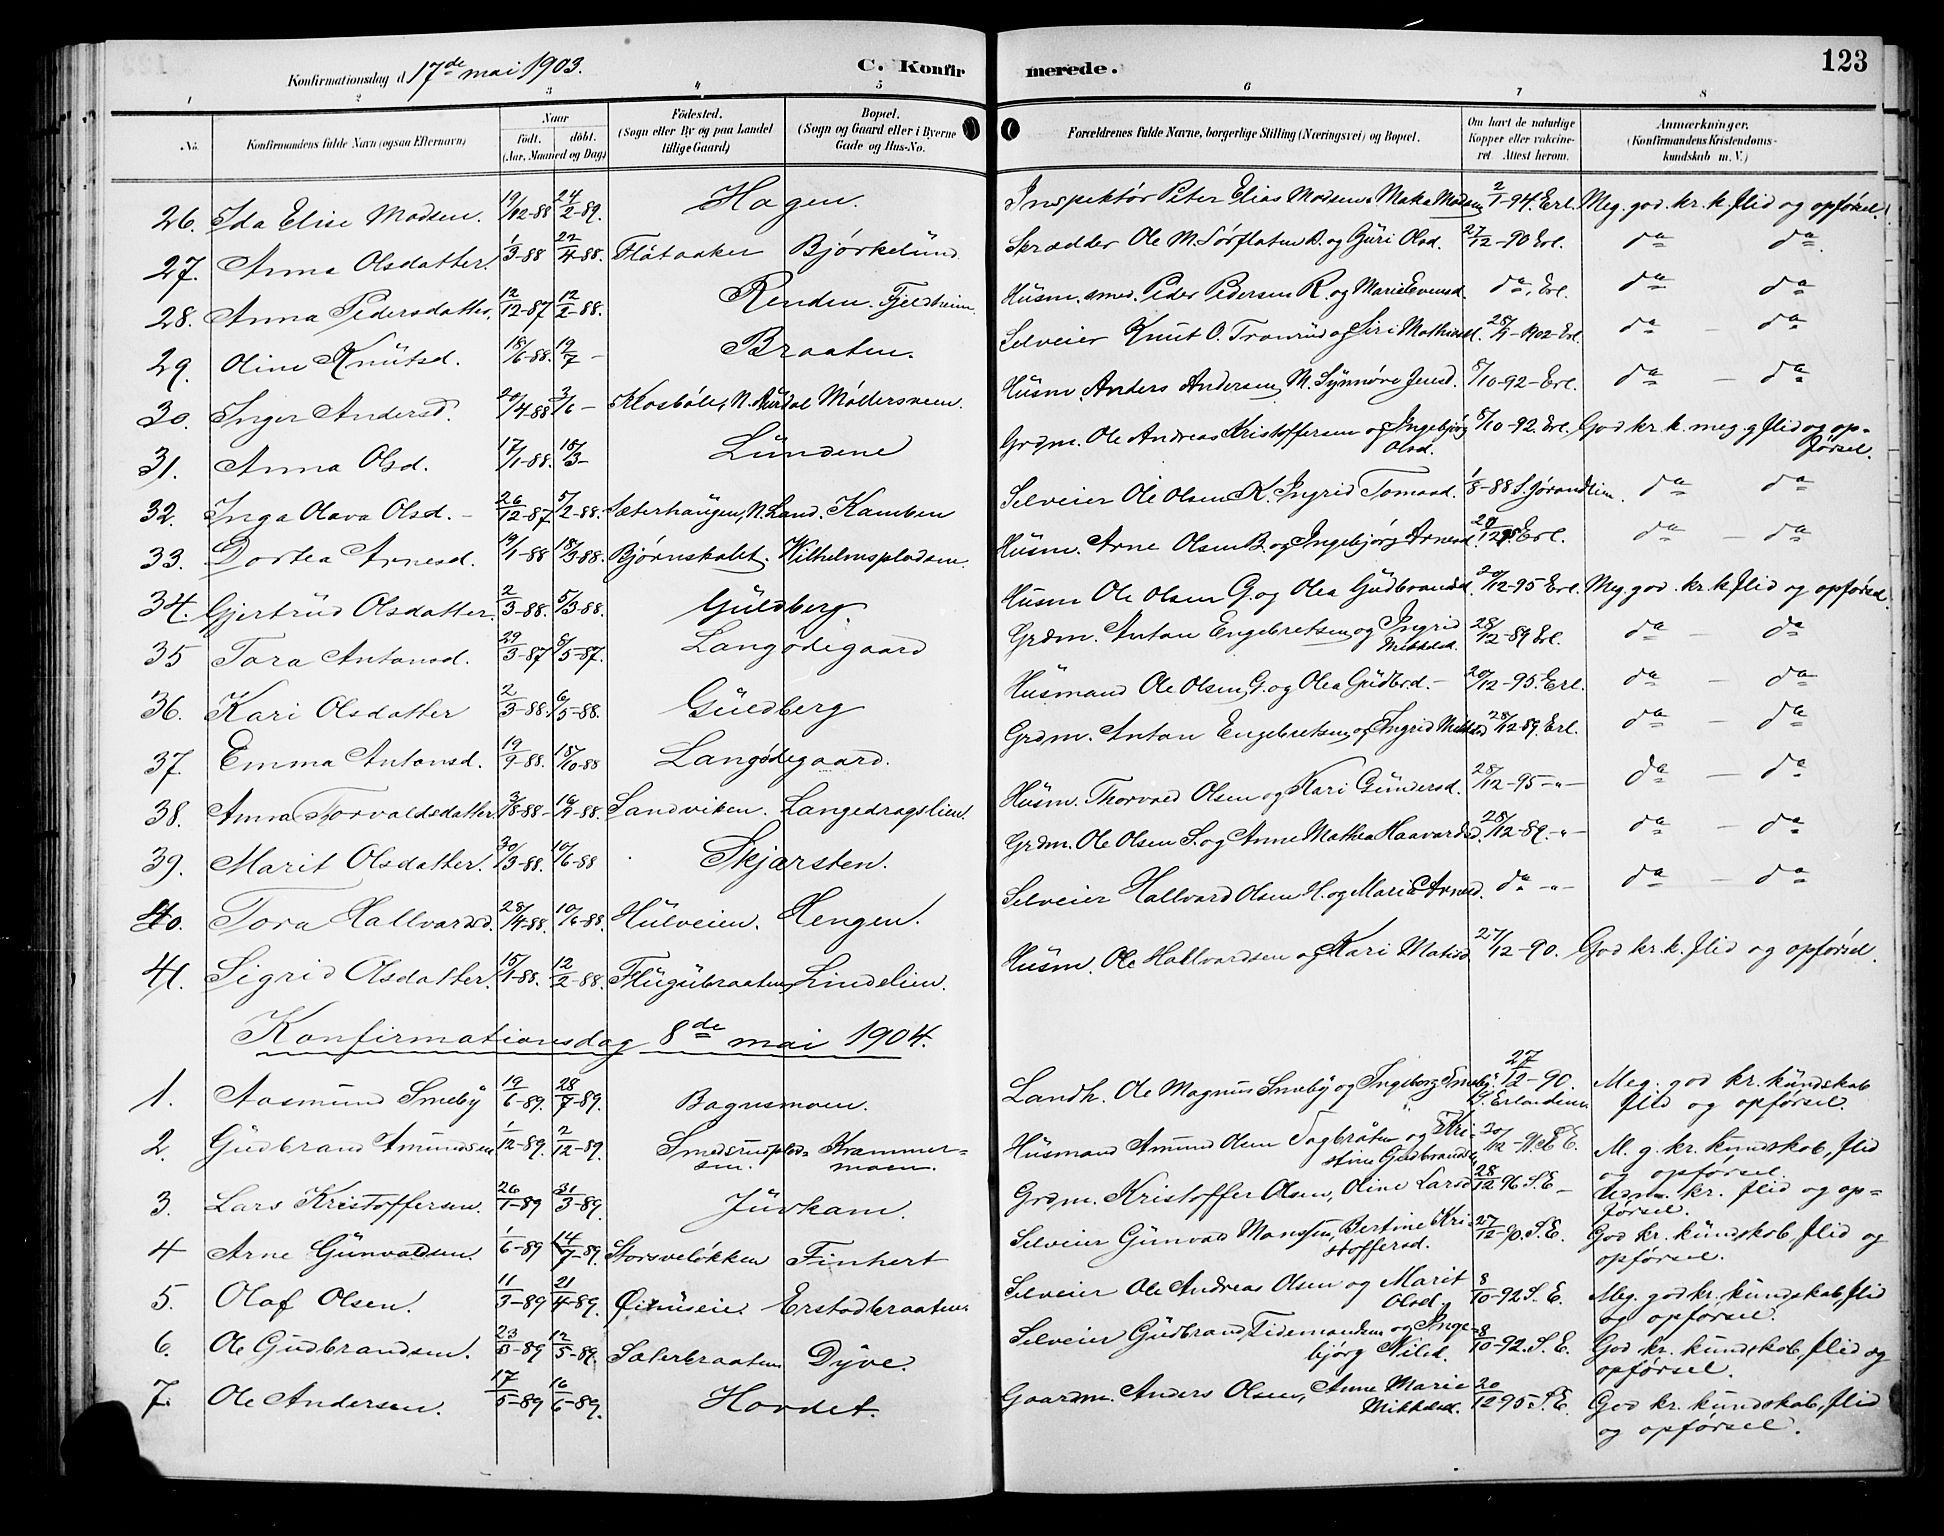 Konfirmationsdag d. 17de mai 1903. C. Konfirmerede. 123
1 2 3 4 5 6 7 8
No. Konfirmandens fulde Navn (ogsaa Efternavn) Naar født. døbt. (Aar, Maaned og Dag) Fødested. (Sogn eller By og paa Landet tillige Gaard) Bopæl. (Sogn og Gaard eller i Byerne Gade og Hus-No. Forældrenes fulde Navne, borgerlige Stilling (Næringsvei) og Bopæl. Om havt de naturlige Kopper eller vakcineret. Attest herom. Anmærkninger. (Konfirmandens Kristendomskundskab m. V.)
26. Ida Elise Madsen. 19/12-88 24/2-89. Hagen. Inspektør Peter Elias Madsen, Madsen 2/1-94. Erl. Meg. god. kr. k. flid og opførsel.
27. Anna Olsdatter. 1/3-88 22/4-88. Fløtaaker Bjørkelund Skrædder Ole M. Sørflaten B. og Guri Olsd. 27/12-90 Erl. da da.
28. Anna Pedersdatter. 12/12-87 12/2-88. Renden. Fjeldheim. Husm. smed. Peder Pedersen R. og Marie Evensd. da, Erl. da da
29. Oline Knutsd. 18/6-88. 19/7 - Braaten. Selveier Knut O. Tronrud og Siri Mathiesd. 28/9-1902-Erl. da - da
30. Inger Andersd. 20/4-88 3/6 - Klosbøle, N. Aurdal Møllersveen. Husm. Anders Andersen M. Synnøve Jensd. 8/10-92-Erl. da - da
31. Anna Olsd. 17/1-88. 18/3 - Lundene Grdm. Ole Andreas Kristoffersen og Ingebjørg Olsd. 8/10-92. Erl. God kr. k. meg. g flid og opførsel.
32. Inga Olava Olsd. - 26/12-87 5/2-88. Sæterhaugen, N. Land. Kamben Selveier Ole Olsen K. Ingrid Tomasd. 1/8-88 S. Jørandlien. da da
33. Dortea Arnesd. 19/1-88 18/3-88. Bjørnskalet. Wilhelmspladsen. Husm. Arne Olsen B. og Ingebjørg Arnesd. Erl. da - da
34. Gjertrud Olsdatter. 2/3-88. 5/3-88. Guldberg. Husm Ole Olsen G. og Olea Gudbrandsd. 20/12-95 Erl. Meg. god. kr. k. flid og opførsel.
35 Tora Antonsd. 29/3-87 8/5-87. Langødegaard Grdm. Anton Engebretsen og Ingrid Mikkelsd. 28/12-89 Erl. da - da
36. Kari Olsdatter 2/3-88. 6/5-88. Guldberg Husmand Ole Olsen G. og Olea Gudbrd. - 20/12-95. Erl. da - da
37. Emma Antonsd. 19/9-88. 18/10-88 Langødegaard. Grdm. Anton Engebretsen og Ingrid Mikkelsd 28/12-89. Erl. da - da
38. Anna Torvaldsdatter. 3/8-88 - 16/9-88. Sandviken. Langedragslien. Husm. Thorvald Olsen og Kari Gundersd. 28/12-95 -"- da - da
39. Marit Olsdatter. 30/3-88. 10/6-88 Skjærsten. Grdm. Ole Olsen S. og Anne Mathea Haavardsd. 28/12-89. -"- da - da
40. Tora Hallvardsd. 28/4-88. 10/6-88. Hulveien. Hengen. Selveier Hallvard Olsen H. og Maria Arnesd. da -"- da - da
41. Sigrid Olsdatter. 15/1-88. 12/2-88. Flugubraaten Lindelien. Husm. Ole Hallvardsen og Kari Matisd 27/12-90. God kr. k. flid og opførsel.
Konfirmationsdag 8de mai 1904.
1. Aasmund Smeby 19/6-89. 28/7-89. Bagnsmoen. Landh. Ole Magnus Smeby og Ingeborg Smeby. 27/12-90. Erlandsen Meg. god kr. kundskab flid og opførsel.
2. Gudbrand Amundsen 1/12-89. 2/12-89. Smedsrudpladsen. Krammermoen. Husmand Amund Olsen Sagbråten og Kristine Gudbrandsd. M. g. kr. kundskab, flid og opførsel.
3. Lars Kristoffersen. 26/1-89 31/3-89. Juvkam. Grdm. Kristoffer Olsen, Oline Larsd 28/12 96 S. E - Udm. kr. flid og opførsel.
4 Arne Gunvaldsen. 1/6-89 14/7-89. Storsveløkken Finhert Selveier Gunvald Monssen, Bertine Kristoffersd. 27/12-90. S. E. God kr. kundskab, flid og opførsel.
5. Olaf Olsen. 11/3-89 21/4-89. Erstadbraaten Selveier Ole Andreas Olsen og Marit Olsd. 8/10-92 S. E. Meg. god kr. kundskab, flid og opførsel.
6. Ole Gudbrandsen. 23/3-89 12/5-89. Sæterbraaten Dyve. Selveier Gudbrand Tidemandsen og Ingebjørg Nilsd. 8/10-92. S. E. God kr. kundskab, flid og opførsel.
7. Ole Andersen. 17/5-89 16/6-89. Hovdet. Gaardm. Anders Olsen, Anne Marie Mikkelsd. 20/12 95 S. E. God kr. kundskab, flid og opførsel.